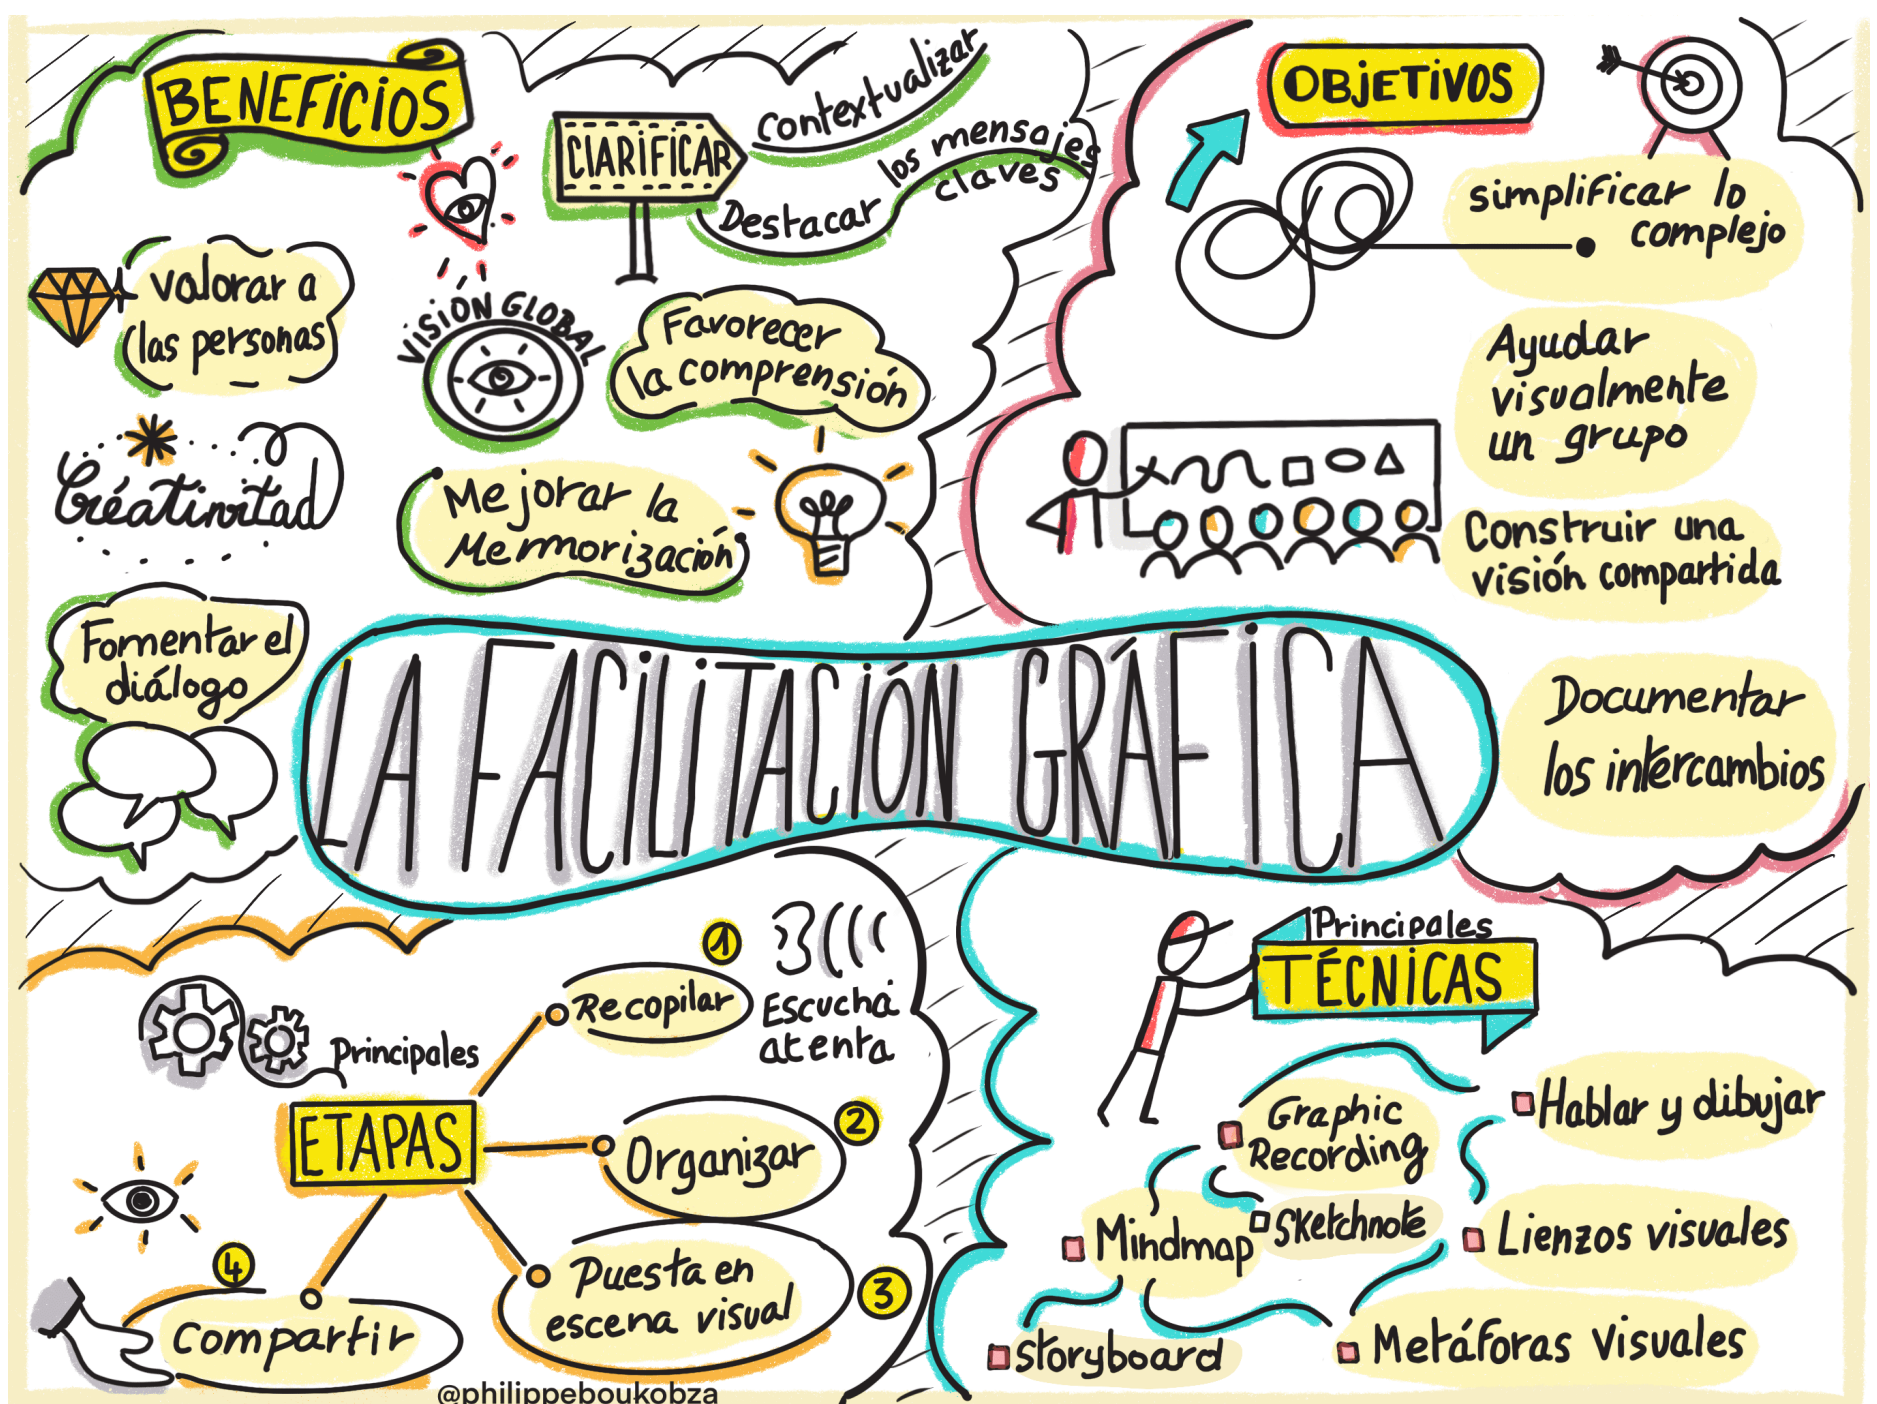 BENEFICIOS
CLARIFICAR
Contextualizar
Destacar los mensajes
claves
valorar a
las personas
VISIÓN GLOBAL
Favorecer
la comprensión
Créatinitad
Mejorar la
Memorización
Fomentar el
diálogo
OBJETIVOS
simplificar lo
complejo
Ayudar
visualmente
un grupo
Construir una
visión compartida
Documentar
los intercambios
LA FACILITACIÓN GRÁFICA
Principales
ETAPAS
1
Recopilar
Escucha
atenta
2
Organizar
3
Puesta en
escena visual
4
Compartir
@philippeboukobza
Principales
TÉCNICAS
Graphic
Recording
Hablar y dibujar
Mindmap
Sketchnote
Lienzos visuales
Storyboard
Metáforas visuales